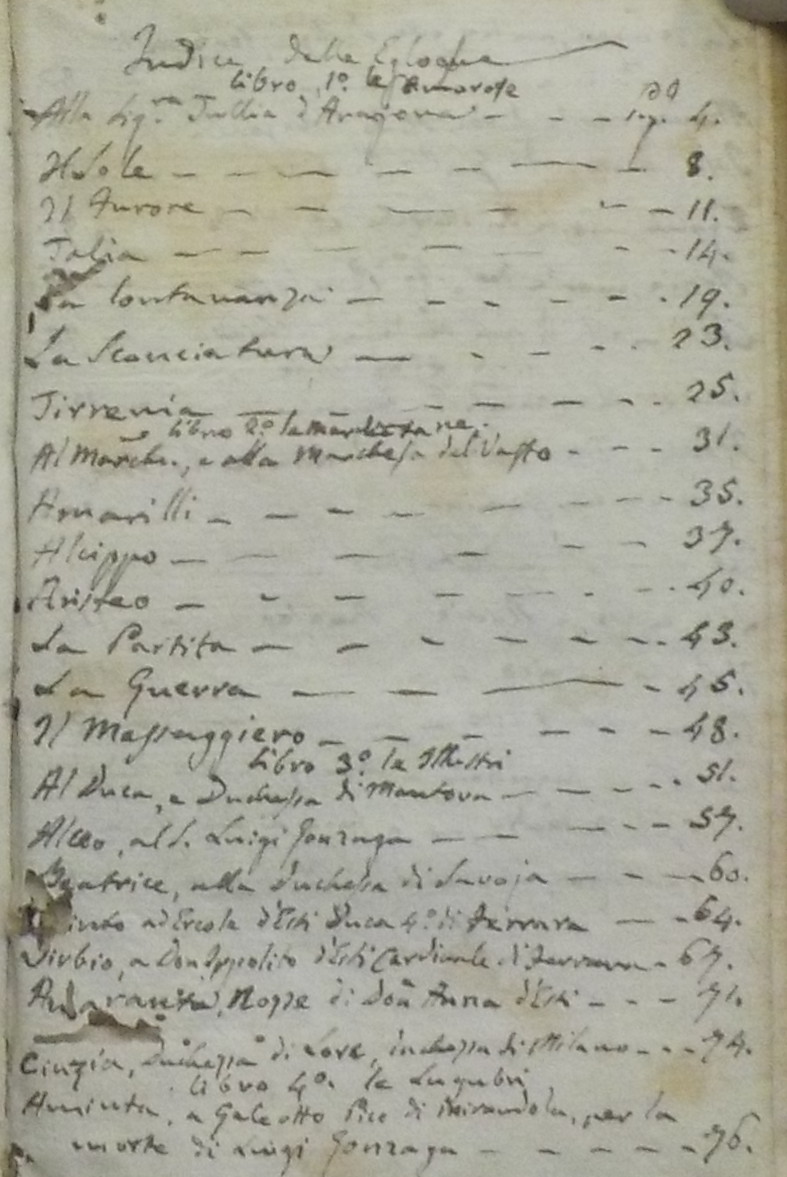 Indice delle Egloghe
libro 1º. le Amorose
Alla Sig.ra Tullia d'Aragona - - - pag. 4.
Il Sole - - - - - 8.
Il Furore - - - - - 11.
Talia - - - - - 14.
La lontananza - - - - - 19.
La Sconciatura - - - - 23.
Tirrenia - - - - - 25.
libro 2º. le Marchesane.
Al March., e alla Marchesa del Vasto - - - 31.
Amarilli - - - - - 35.
Alcippo - - - - - 37.
Aristeo - - - - - 40.
La Partita - - - - - 43.
La Guerra - - - - 45.
Il Messaggiero - - - - - 48.
libro 3º. le Illustri
Al Duca, e Duchessa di Mantova - - - - 51.
Alceo, al S. Luigi Gonzaga - - - - 57.
Beatrice, alla Duchessa di Savoja - - - 60.
ad Ercole d'Esti Duca 4º. di Ferrara - - 64.
a Don Ippolito d'Esti Cardinale di Ferrara - 67.
Nozze di Don Anna d'Esti - - - 71.
Cinzia, Duchessa di Lore, duchessa di Milano - - - 74.
libro 4º. le Lugubri
Aminta, a Galeotto Pico di Mirandola, per la
morte di Luigi Gonzaga - - - - - 76.